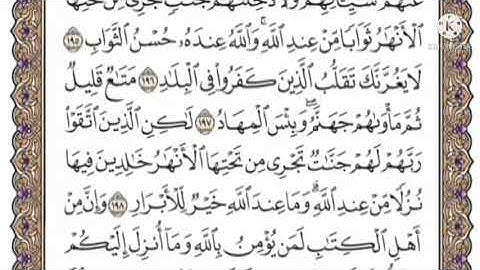 عَنْهُمْ سَيِّـَٔاتِهِمْ وَلَأُدْخِلَنَّهُمْ جَنَّٰتٍ تَجْرِى مِن تَحْتِهَا
ٱلْأَنْهَٰرُ ثَوَابًا مِّنْ عِندِ ٱللَّهِ ۗ وَٱللَّهُ عِندَهُۥ حُسْنُ ٱلثَّوَابِ ١٩٥
لَا يَغُرَّنَّكَ تَقَلُّبُ ٱلَّذِينَ كَفَرُوا۟ فِى ٱلْبِلَٰدِ ١٩٦ مَتَٰعٌ قَلِيلٌ
ثُمَّ مَأْوَىٰهُمْ جَهَنَّمُ ۚ وَبِئْسَ ٱلْمِهَادُ ١٩٧ لَٰكِنِ ٱلَّذِينَ ٱتَّقَوْا۟
رَبَّهُمْ لَهُمْ جَنَّٰتٌ تَجْرِى مِن تَحْتِهَا ٱلْأَنْهَٰرُ خَٰلِدِينَ فِيهَا
نُزُلًا مِّنْ عِندِ ٱللَّهِ ۗ وَمَا عِندَ ٱللَّهِ خَيْرٌ لِّلْأَبْرَارِ ١٩٨ وَإِنَّ مِنْ
أَهْلِ ٱلْكِتَٰبِ لَمَن يُؤْمِنُ بِٱللَّهِ وَمَآ أُنزِلَ إِلَيْكُمْ